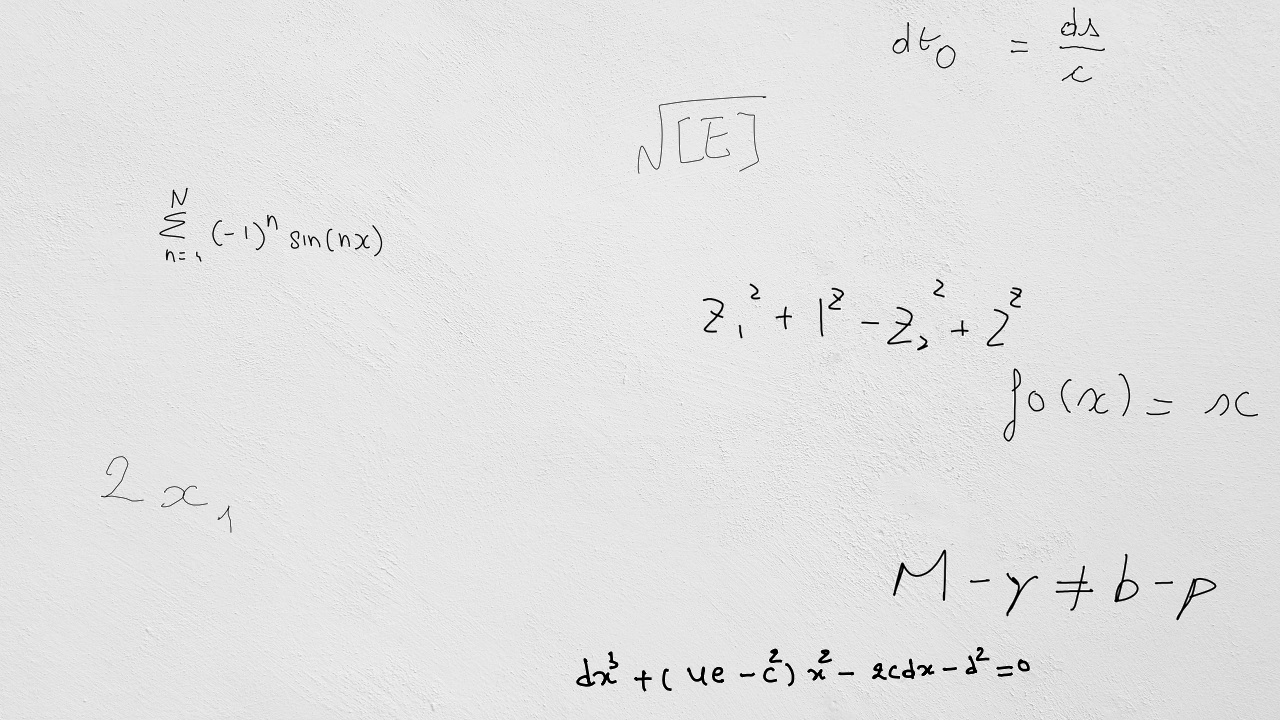 dt_0 = \frac{ds}{c}
\sqrt{[E]}
\sum_{n=1}^{N} (-1)^n sin(nx)
z_1^2 + 1^2 - z_2^2 + 2^2
f_0(x) = x
2x_1
M - γ ≠ b - p
dx^3 + (4e - c^2) x^2 - 2cdx - d^2 = 0